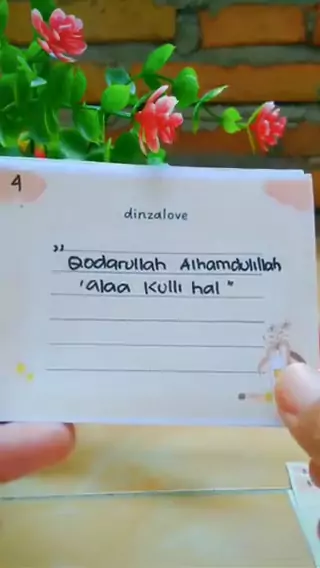 4
dinzalove
" Qodarullah Alhamdulillah
'alaa kulli hal "